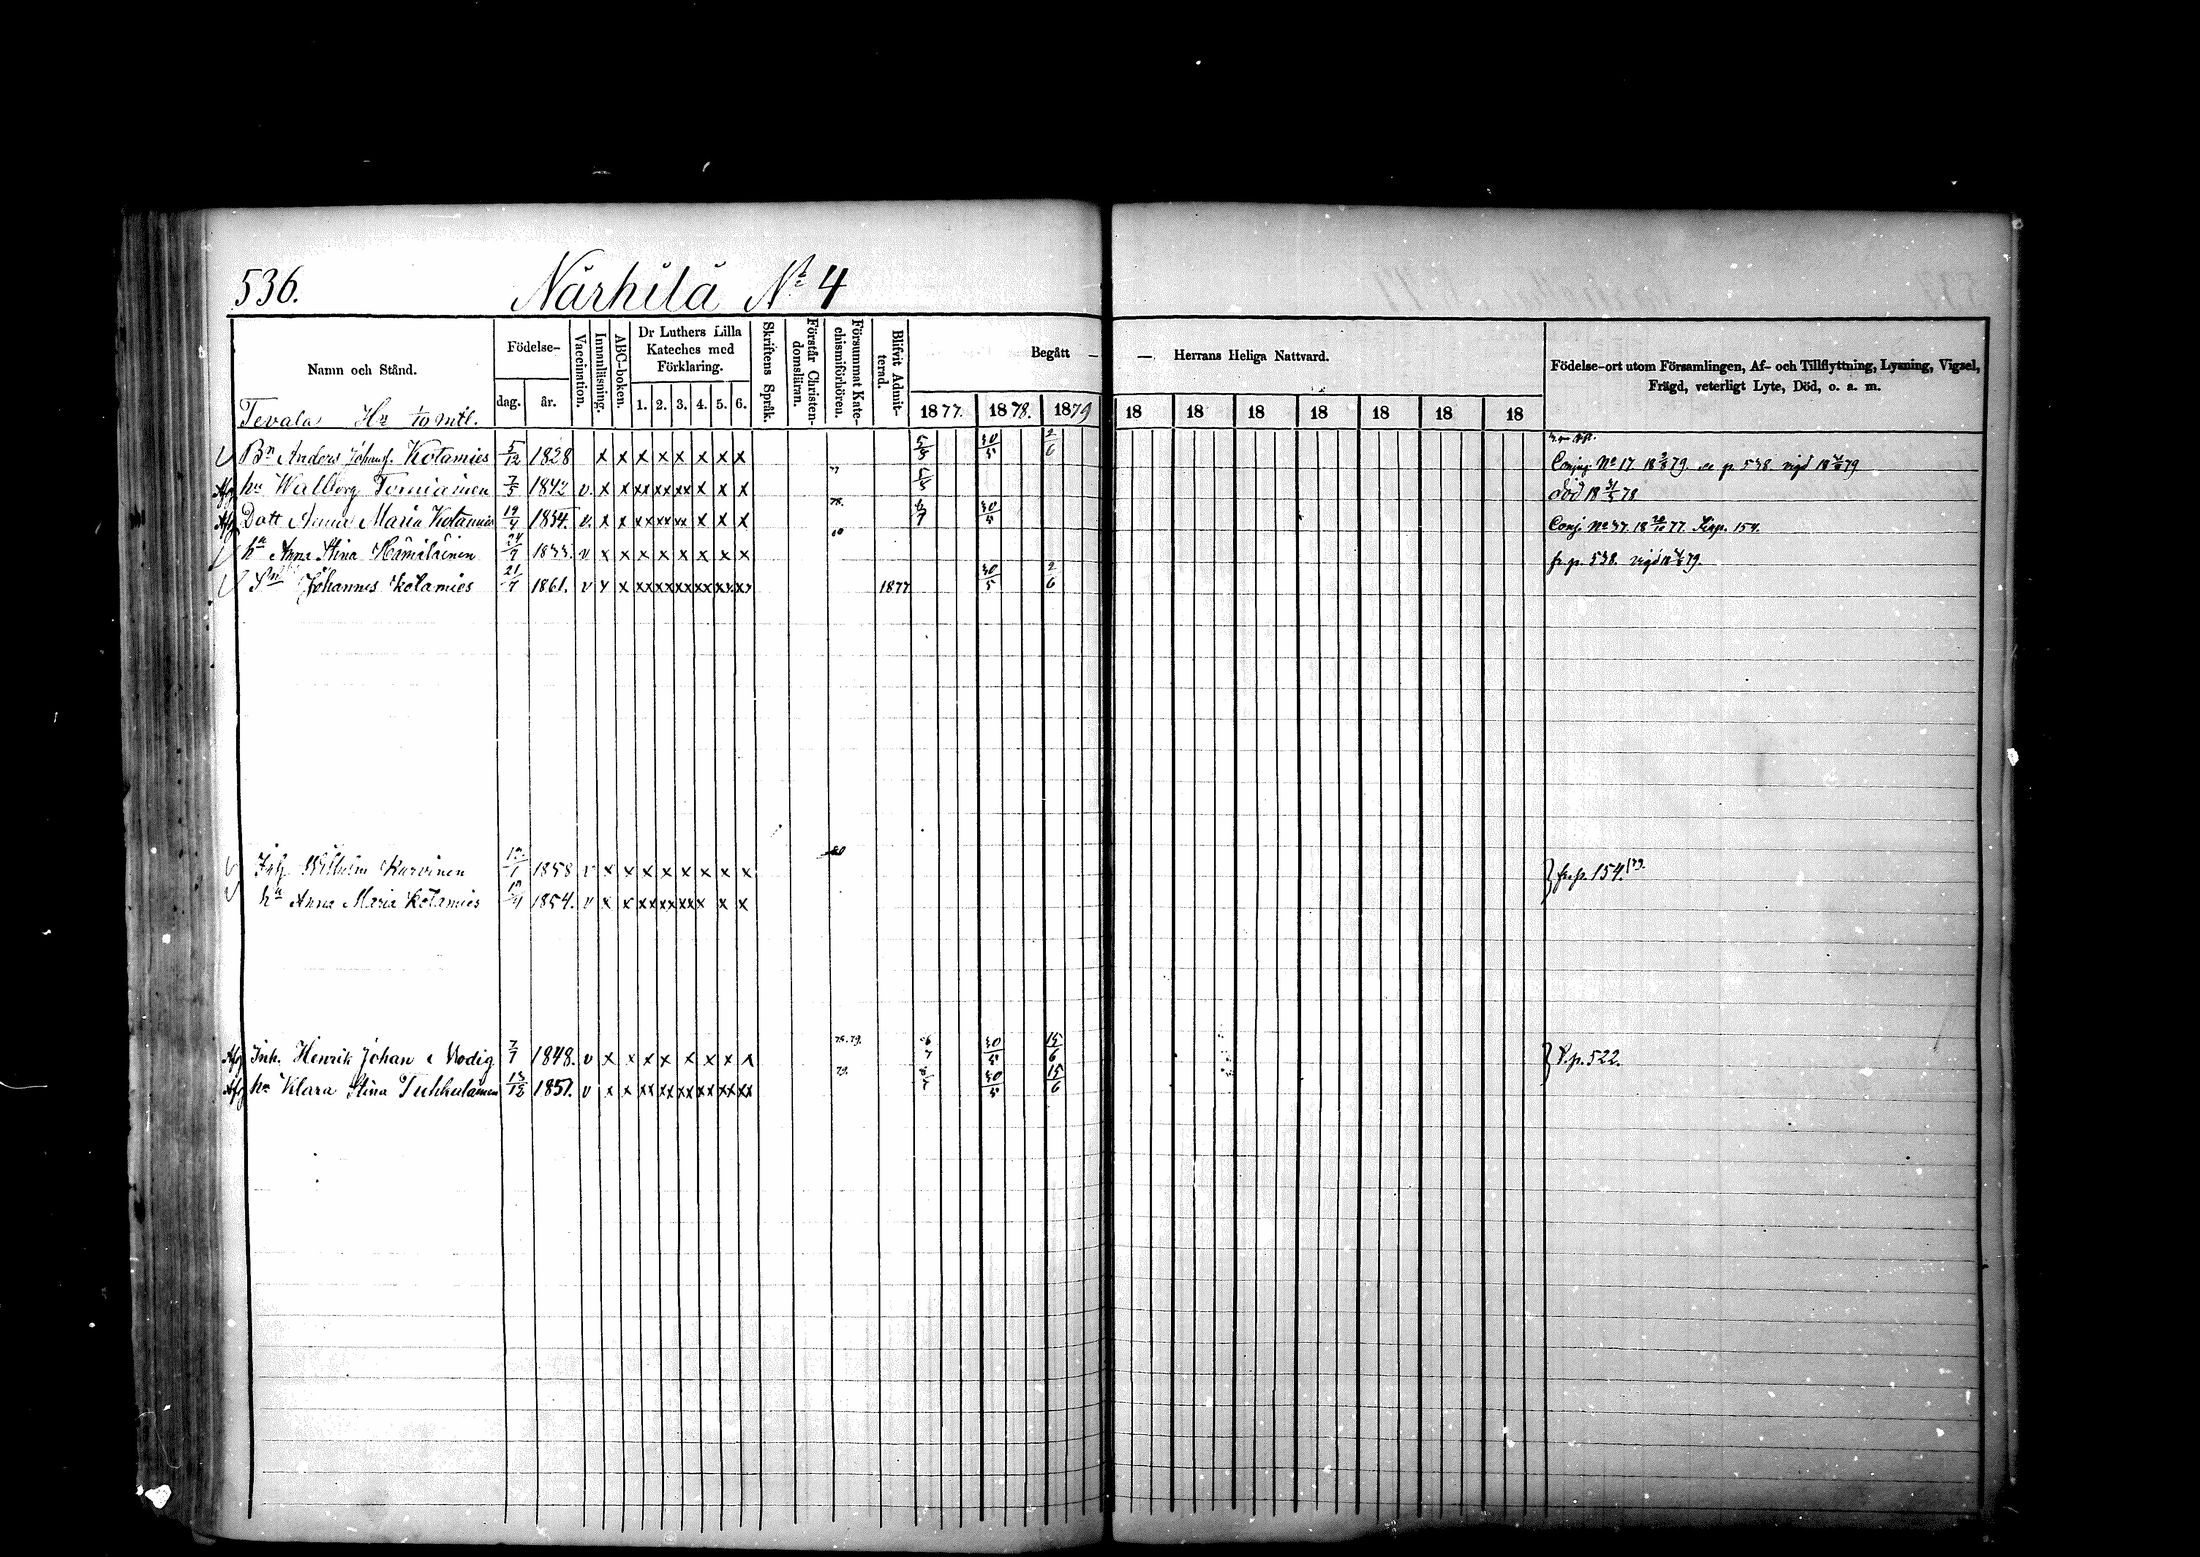 536. Närhilä No 4
Namn och Stånd.
Födelse-
dag. år.
Vaccination.
Innanläsning.
ABC-boken.
Dr Luthers Lilla Kateches med Förklaring.
1. 2. 3. 4. 5. 6.
Skriftens Språk.
Förstår Christendomsläran.
Försummat Katechismiförhören.
Blifvit Admitterad.
Begått — — Herrans Heliga Nattvard.
1877. 1878. 1879 18 18 18 18 18 18 18
Födelse-ort utom Församlingen, Af- och Tillflyttning, Lysning, Vigsel,
Frägd, veterligt Lyte, Död, o. a. m.
Tevala Hn mtl.
Bn Anders Johansf. Kotamies 5/12 1828 x x x x x x x x 5/5 30/5 2/6 Conj. No 17 18 79. se p. 538 vigd 18 79
Afg hu Walborg 7/5 1842 v. x x xx xx xx x x x 77 5/5 död 18 31/5 78
Afg Dott Anna Maria Kotamies 19/4 1854. v. x x xx xx xx x x x 78. 30/5 Conj. No 37. 18 77. p. 154.
hu Anna Stina Hämäläinen 24/7 v x x x x x x x x 80 fr. p. 538. vigd 18 79.
Sn Johannes Kotamies 21/4 1861. v x x xx xx xx xx xx xx 1877 30/5 2/6
Inh. Wilhelm Karvinen 1858 v x x x x x x x x 80 fr. p. 154. 79.
hu Anna Maria Kotamies 19/4 1854. v x x xx xx xx x x x
Afg Inh. Henrik Johan Modig 7/7 1848. v x x x x x x x x 78. 79. 30/5 15/6 P. p. 522.
Afg hu Klara Stina Tuhkalainen 13/12 1851. v x x xx xx xx xx xx xx 79. 30/5 15/6